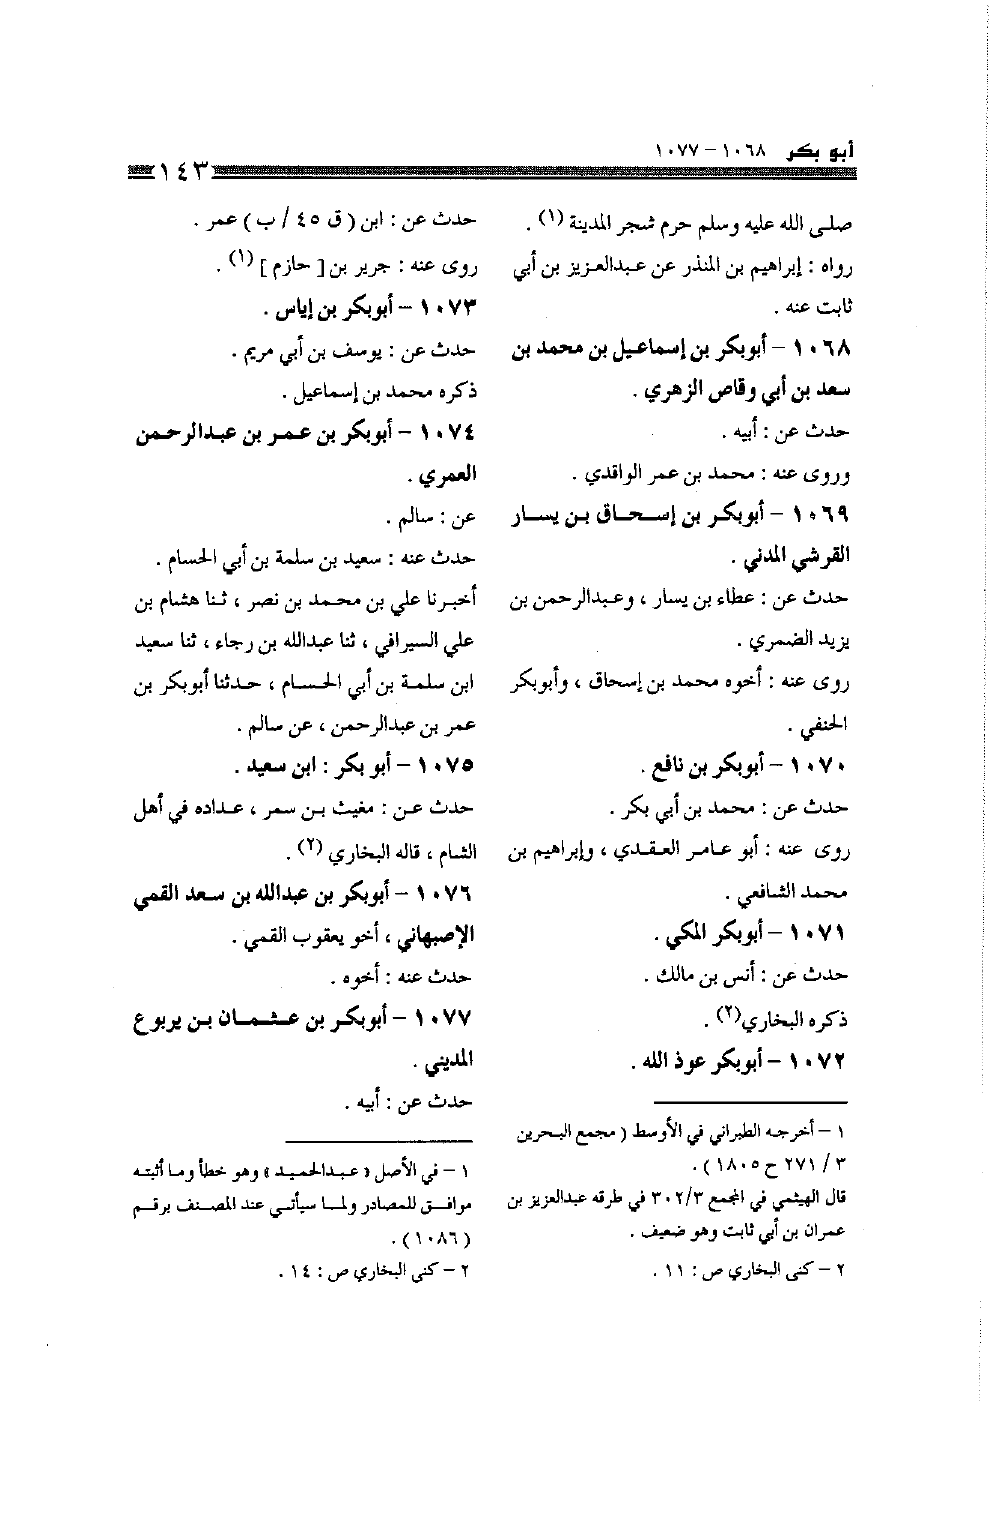 أبو بكر ١٠٦٨ – ١٠٧٧
١٤٣
صلى الله عليه وسلم حرم شجر المدينة (١) .
رواه : إبراهيم بن المنذر عن عبدالعزيز بن أبي
ثابت عنه .
١٠٦٨ – أبوبكر بن إسماعيل بن محمد بن
سعد بن أبي وقاص الزهري .
حدث عن : أبيه .
وروى عنه : محمد بن عمر الواقدي .
١٠٦٩ – أبوبكر بن إسحاق بن يسار
القرشي المدني .
حدث عن : عطاء بن يسار ، وعبدالرحمن بن
يزيد الضمري .
روى عنه : أخوه محمد بن إسحاق ، وأبوبكر
الحنفي .
١٠٧٠ – أبوبكر بن نافع .
حدث عن : محمد بن أبي بكر .
روى عنه : أبو عامر العقدي ، وإبراهيم بن
محمد الشافعي .
١٠٧١ – أبوبكر المكي .
حدث عن : أنس بن مالك .
ذكره البخاري(٢) .
١٠٧٢ – أبوبكر عوذ الله .
١ – أخرجه الطبراني في الأوسط ( مجمع البحرين
٣ / ٢٧١ ح ١٨٠٥ ) .
قال الهيثمي في المجمع ٣٠٢/٣ في طرقه عبدالعزيز بن
عمران بن أبي ثابت وهو ضعيف .
٢ – كنى البخاري ص : ١١ .
حدث عن : ابن ( ق ٤٥ / ب ) عمر .
روى عنه : جرير بن [ حازم ] (١) .
١٠٧٣ – أبوبكر بن إياس .
حدث عن : يوسف بن أبي مريم .
ذكره محمد بن إسماعيل .
١٠٧٤ – أبوبكر بن عمر بن عبدالرحمن
العمري .
عن : سالم .
حدث عنه : سعيد بن سلمة بن أبي الحسام .
أخبرنا علي بن محمد بن نصر ، ثنا هشام بن
علي السيرافي ، ثنا عبدالله بن رجاء ، ثنا سعيد
ابن سلمة بن أبي الحسام ، حدثنا أبوبكر بن
عمر بن عبدالرحمن ، عن سالم .
١٠٧٥ – أبو بكر : ابن سعيد .
حدث عن : مغيث بن سمر ، عداده في أهل
الشام ، قاله البخاري (٢) .
١٠٧٦ – أبوبكر بن عبدالله بن سعد القمي
الإصبهاني ، أخو يعقوب القمي .
حدث عنه : أخوه .
١٠٧٧ – أبوبكر بن عثمان بن يربوع
المديني .
حدث عن : أبيه .
١ – في الأصل « عبدالحميد » وهو خطأ وما أثبته
موافق للمصادر ولما سيأتي عند المصنف برقم
( ١٠٨٦ ) .
٢ – كنى البخاري ص : ١٤ .